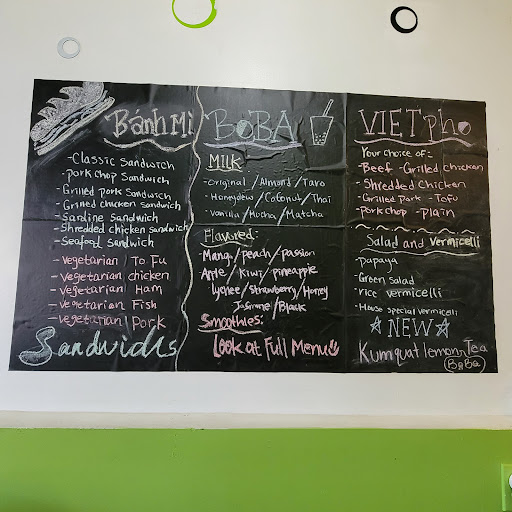 Bánh Mi
-Classic Sandwich
-Pork Chop Sandwich
-Grilled Pork Sandwich
-Grilled chicken Sandwich
-Sardine Sandwich
-Shredded chicken sandwich
-Seafood Sandwich
-Vegetarian / To Fu
-Vegetarian chicken
-Vegetarian Ham
-Vegetarian Fish
-Vegetarian Pork
Sandwichs
BOBA
Milk:
-Original / Almond / Taro
-Honeydew / Coconut / Thai
-Vanilla / Mocha / Matcha
Flavored:
Mango / peach / passion
Apple / Kiwi / pineapple
Lychee / Strawberry / Honey
Jasmine / Black
Smoothies:
Look at Full Menu
VIET pho
Your choice of:
-Beef -Grilled chicken
-Shredded Chicken
-Grilled Pork -Tofu
-Pork chop -Plain
Salad and vermicelli
-Papaya
-Green Salad
-rice vermicelli
-House special vermicelli
☆NEW☆
Kumquat lemon Tea
BoBa